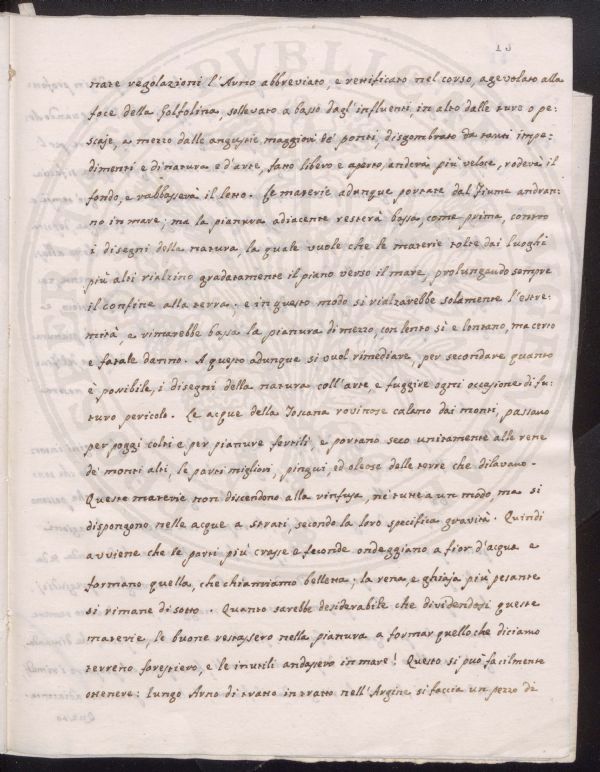 13
nate regolazioni l'Arno abbreviato, e rettificato nel corso, agevolato alla
foce della Golfolina, sollevato a basso dagl'influenti, in alto dalle ture o pe-
scaje, a mezzo dalle angustie maggiori de' ponti, disgombrato da tanti impe-
dimenti e di natura e d'arte, fatto libero e aperto, anderà più veloce, roderà il
fondo, e rabbasserà il letto. Le materie adunque portate dal Fiume andran-
no in mare; ma la pianura adiacente resterà bassa, come prima, contro
i disegni della natura, la quale vuole che le materie tolte dai luoghi
più alti rialzino gradatamente il piano verso il mare, prolungando sempre
il confine alla terra; e in questo modo si rialzarebbe solamente l'estre-
mità e rimarebbe bassa la pianura di mezzo, con lento sì e lontano, ma certo
e fatale danno. A questo adunque si vuol rimediare, per secondare quanto
è possibile, i disegni della natura coll'arte e fuggire ogni occasione di fu-
turo pericolo. Le acque della Toscana rovinose calano dai monti, passano
per poggi colti e per pianure fertili, e portano seco unitamente alle rene
de' monti alti, le parti migliori, pingui, ed oleose delle terre che dilavano.
Queste materie non discendono alla rinfusa, nè tutte a un modo, ma si
dispongono nelle acque a strati, secondo la loro specifica gravità. Quindi
avviene che le parti più crasse e feconde ondeggiano a fior d'acqua e
formano quella, che chiamiamo belletta; la rena, e ghiaja più pesante
si rimane di sotto. Quanto sarebbe desiderabile che dividendosi queste
materie, le buone restassero nella pianura a formar quello che diciamo
terreno forestiero, e le inutili andassero in mare! Questo si può facilmente
ottenere: lungo Arno di tratto in tratto nell'Argine si faccia un pezzo di